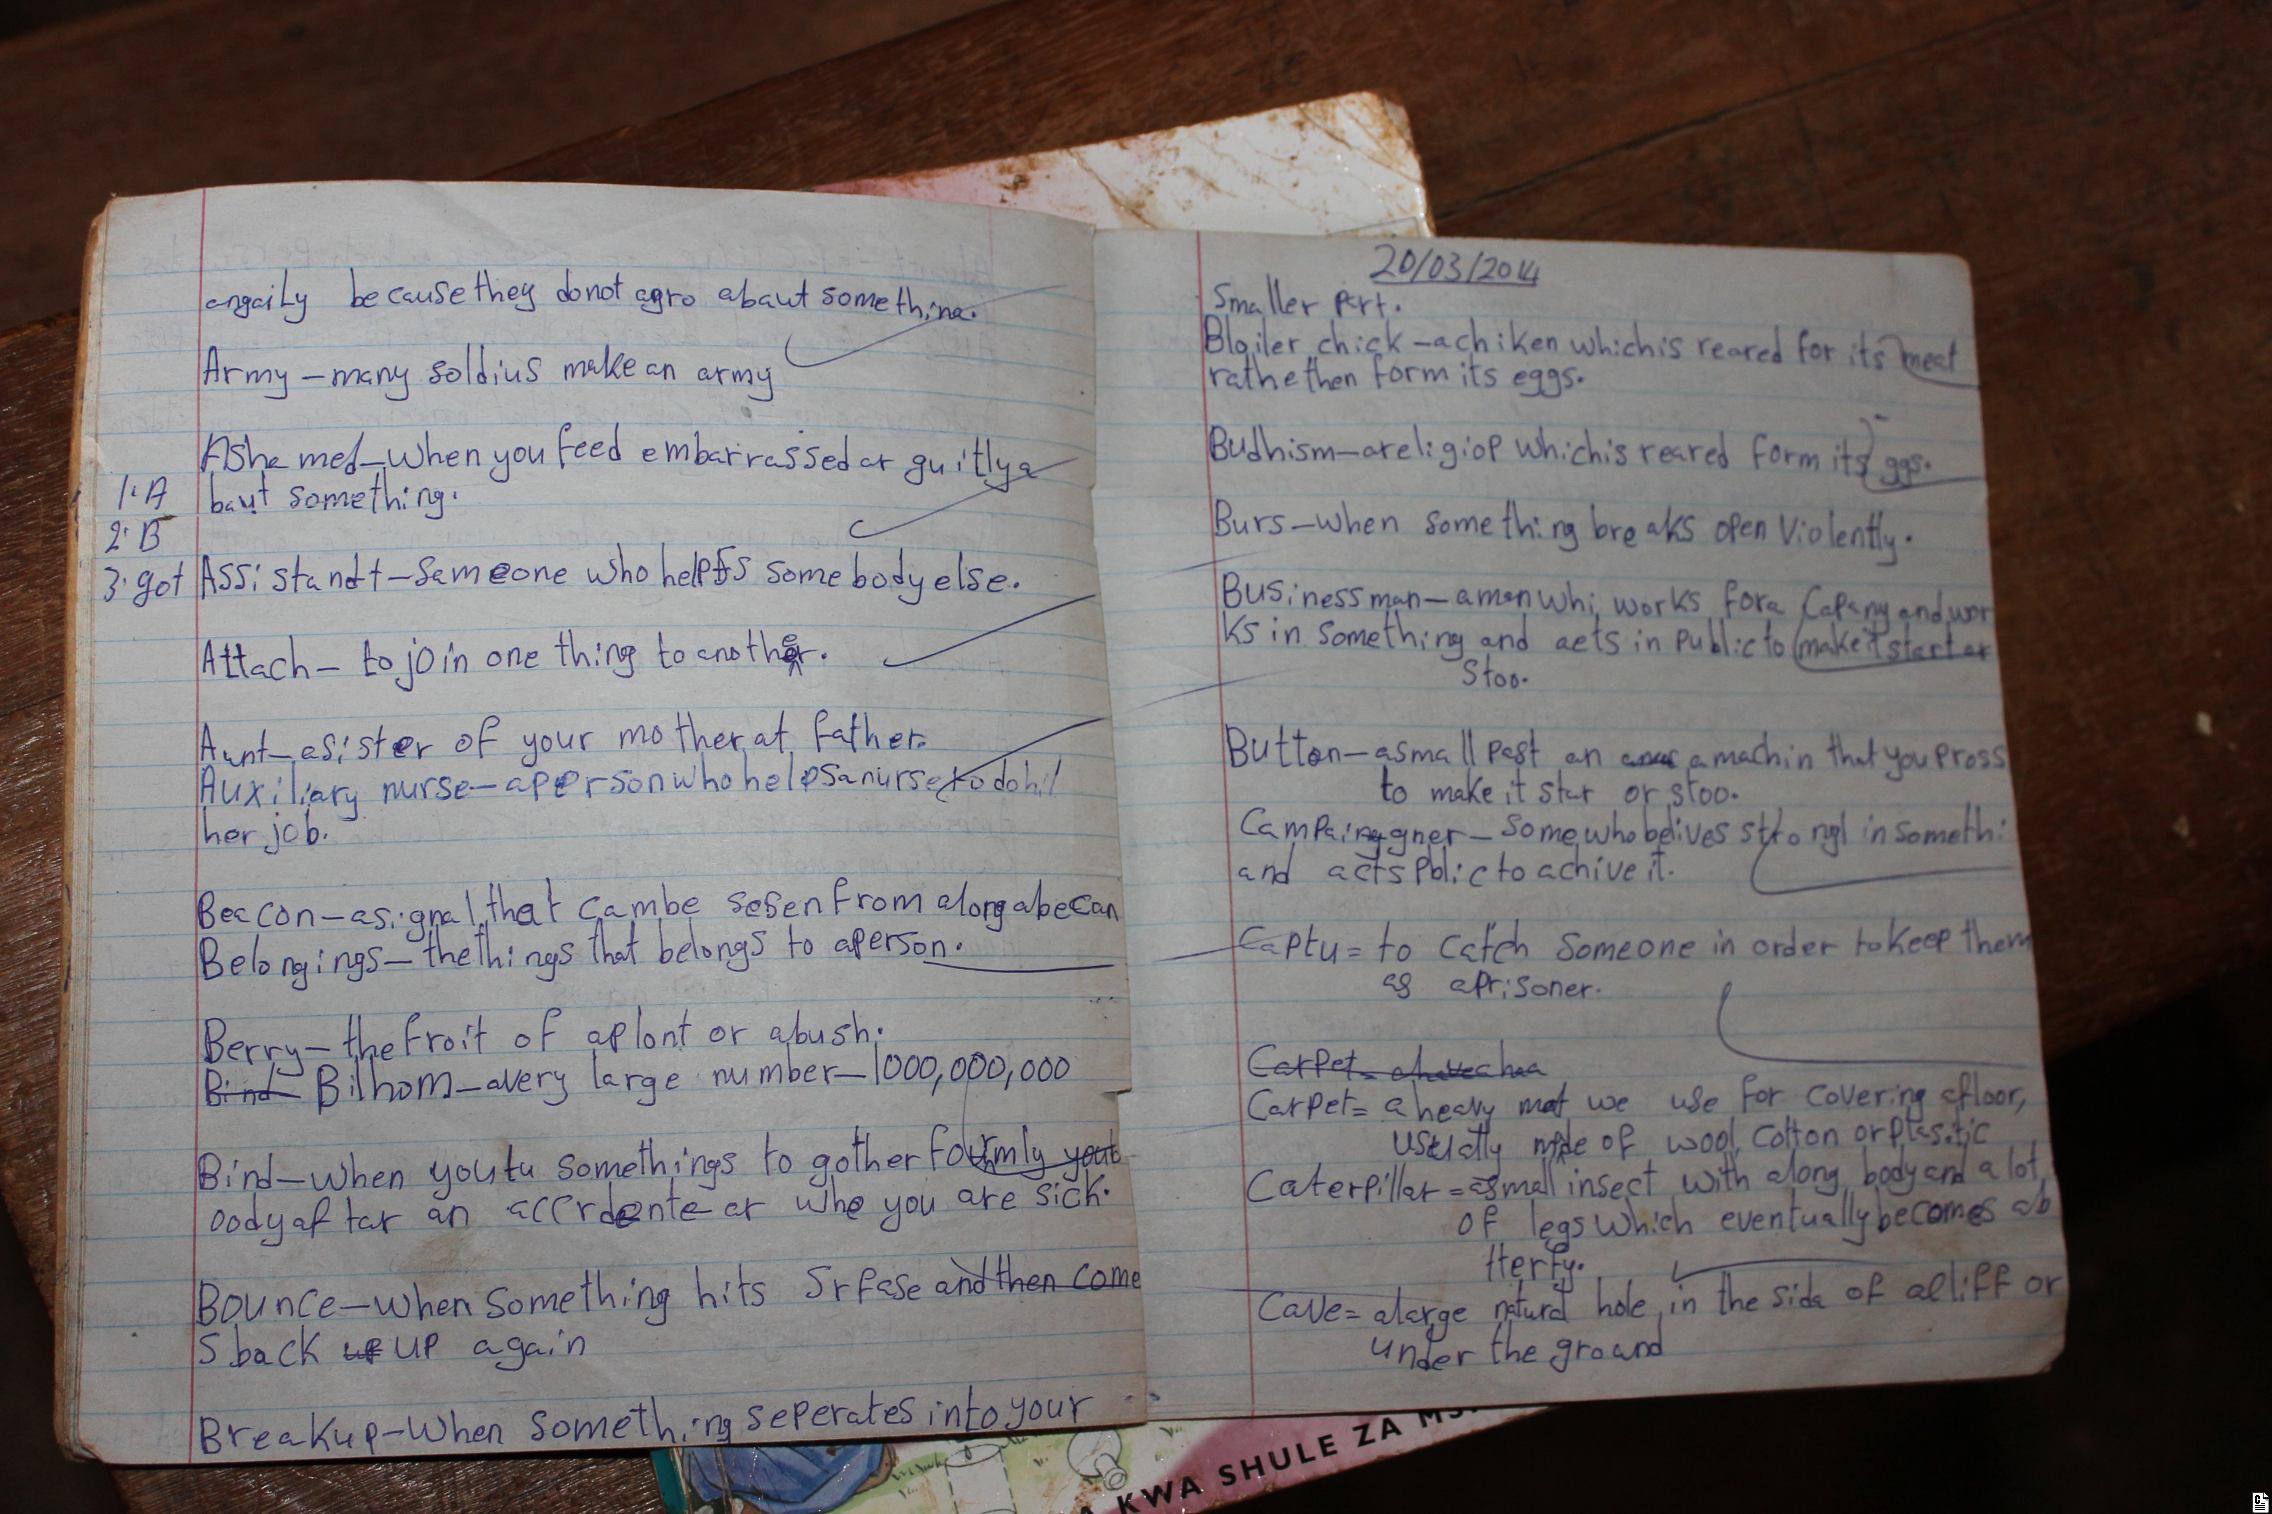 angaily because they donot agro abaut something.
Army – many soldius make an army
Ashamed – when you feed embarrassed ar guitly a
baut something.
1. A
2. B
3. got
Assistandt – Sameone who helpfs somebody else.
Attach – to join one thing to another.
Aunt – a sister of your mother, at father.
Auxiliary nurse – a person who helps a nurse to do hi/
her job.
Beacon – a signal that cambe sesen from along abecan
Belongings – the things that belongs to aperson.
Berry – the froit of aplont or abush.
Bind Bilhom – avery large number – 1000,000,000
Bind – when youtu somethings to gother fourmly yout
oodyaftar an accrdente ar whe you are sick.
Bounce – when something hits Srfase and then come
s back up up again
Breakup – when something seperates into your
20/03/2014
Smaller part.
Bloiler chick – a chiken which is reared for its meat
rathe then form its eggs.
Budhism – a religiop which is reared form its ggs.
Burs – when something breaks open violently.
Businessman – a man whi works fora Capany and wor
ks in something and aets in public to make it start ar
Stoo.
Button – asmall past an a machin that you pross
to make it star or stoo.
Campaingner – Some who belives strongl in somethi
and acts Pblic to achive it.
Captu = to catch someone in order to keep them
as aprisoner.
Carpet =
Carpet = a heavy mat we use for covering afloor,
usually made of wool, cotton or plasitic
Caterpillar = asmall insect with along body and a lot
of legs which eventually becomes ab
tterfy.
Cave = alarge natural hole in the side of acliff or
under the ground
KWA SHULE ZA MS